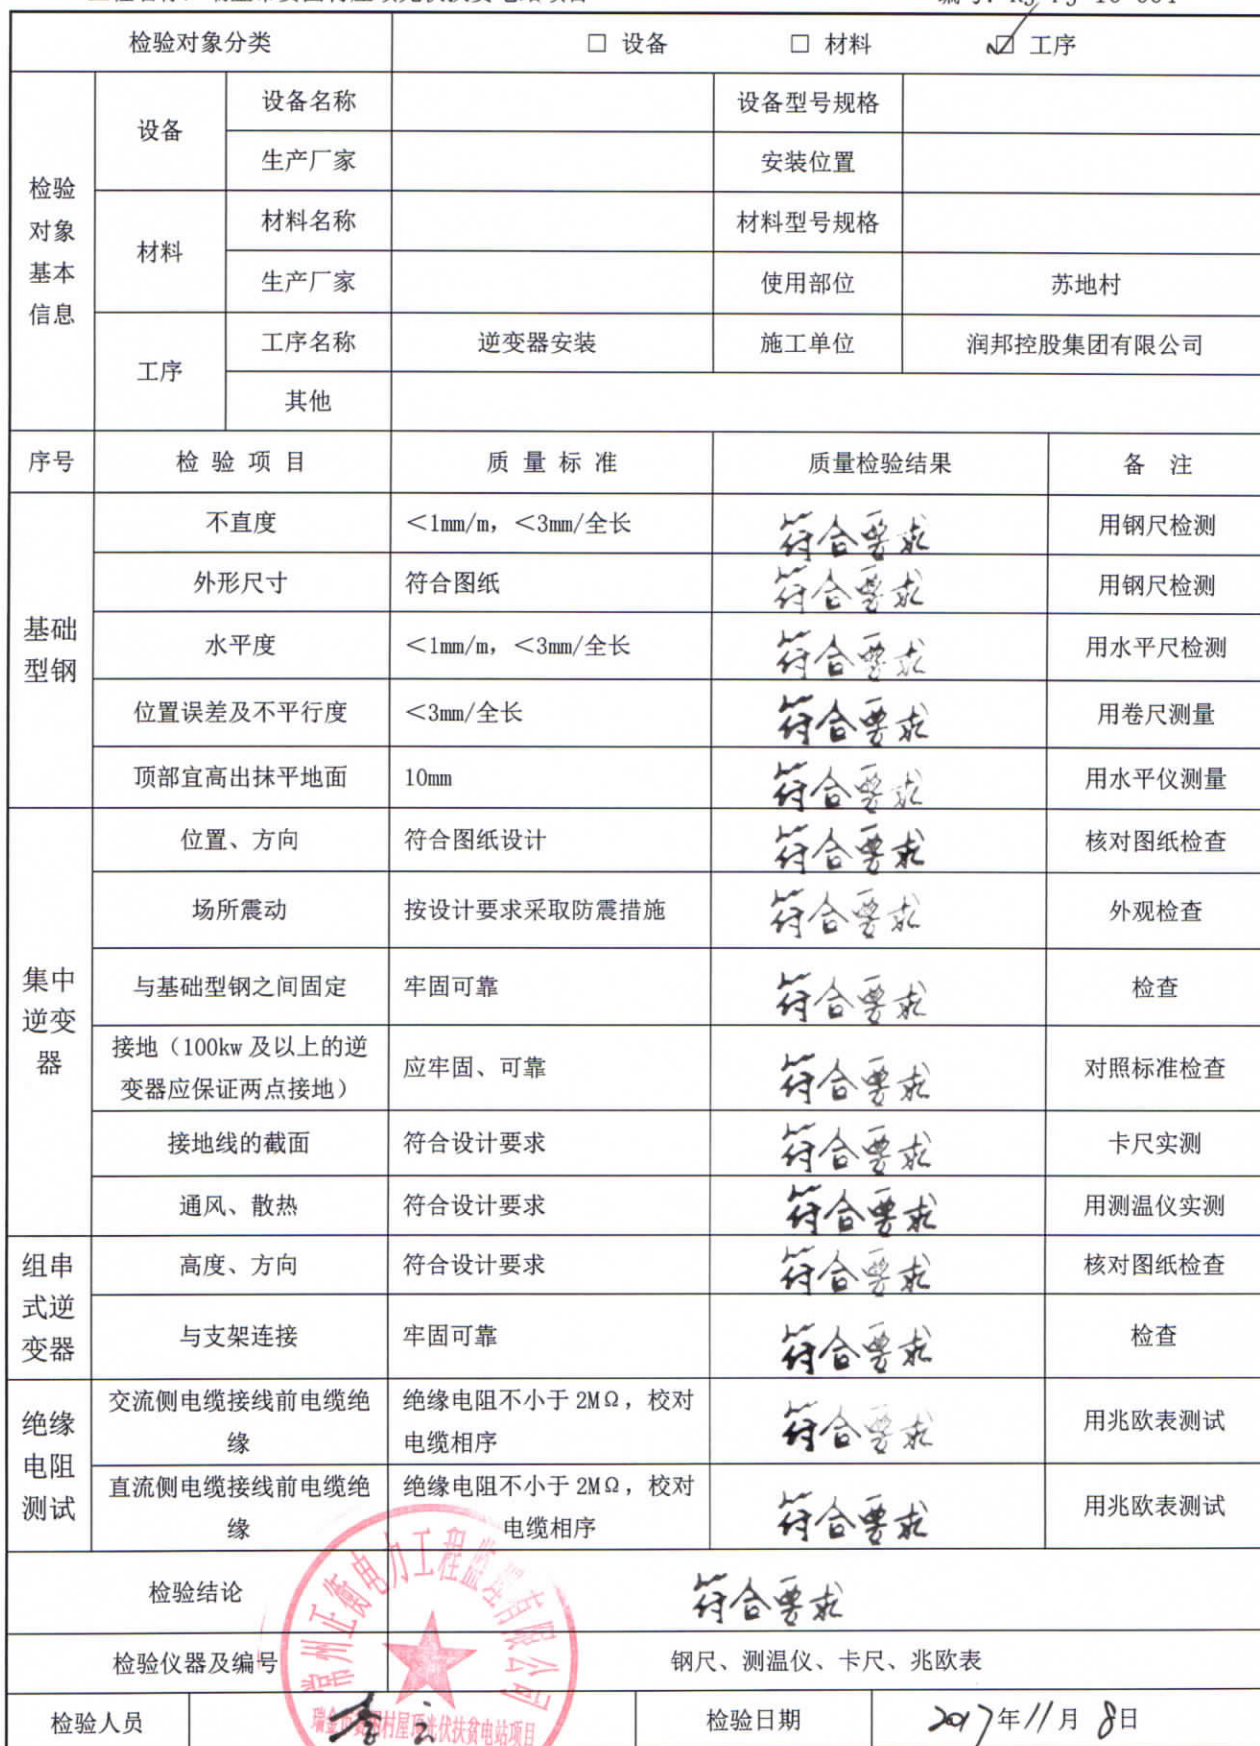 检验对象分类 □ 设备 □ 材料 ☑ 工序
检验对象基本信息 设备 设备名称 设备型号规格
生产厂家 安装位置
材料 材料名称 材料型号规格
生产厂家 使用部位 苏地村
工序 工序名称 逆变器安装 施工单位 润邦控股集团有限公司
其他
序号 检验项目 质量标准 质量检验结果 备注
基础型钢 不直度 <1mm/m，<3mm/全长 符合要求 用钢尺检测
外形尺寸 符合图纸 符合要求 用钢尺检测
水平度 <1mm/m，<3mm/全长 符合要求 用水平尺检测
位置误差及不平行度 <3mm/全长 符合要求 用卷尺测量
顶部宜高出抹平地面 10mm 符合要求 用水平仪测量
集中逆变器 位置、方向 符合图纸设计 符合要求 核对图纸检查
场所震动 按设计要求采取防震措施 符合要求 外观检查
与基础型钢之间固定 牢固可靠 符合要求 检查
接地（100kw 及以上的逆变器应保证两点接地） 应牢固、可靠 符合要求 对照标准检查
接地线的截面 符合设计要求 符合要求 卡尺实测
通风、散热 符合设计要求 符合要求 用测温仪实测
组串式逆变器 高度、方向 符合设计要求 符合要求 核对图纸检查
与支架连接 牢固可靠 符合要求 检查
绝缘电阻测试 交流侧电缆接线前电缆绝缘 绝缘电阻不小于 2MΩ，校对电缆相序 符合要求 用兆欧表测试
直流侧电缆接线前电缆绝缘 绝缘电阻不小于 2MΩ，校对电缆相序 符合要求 用兆欧表测试
检验结论 符合要求
常州正衡电力工程监理有限公司
检验仪器及编号 钢尺、测温仪、卡尺、兆欧表
村屋顶光伏扶贫电站项目
检验人员 检验日期 2017年11月8日